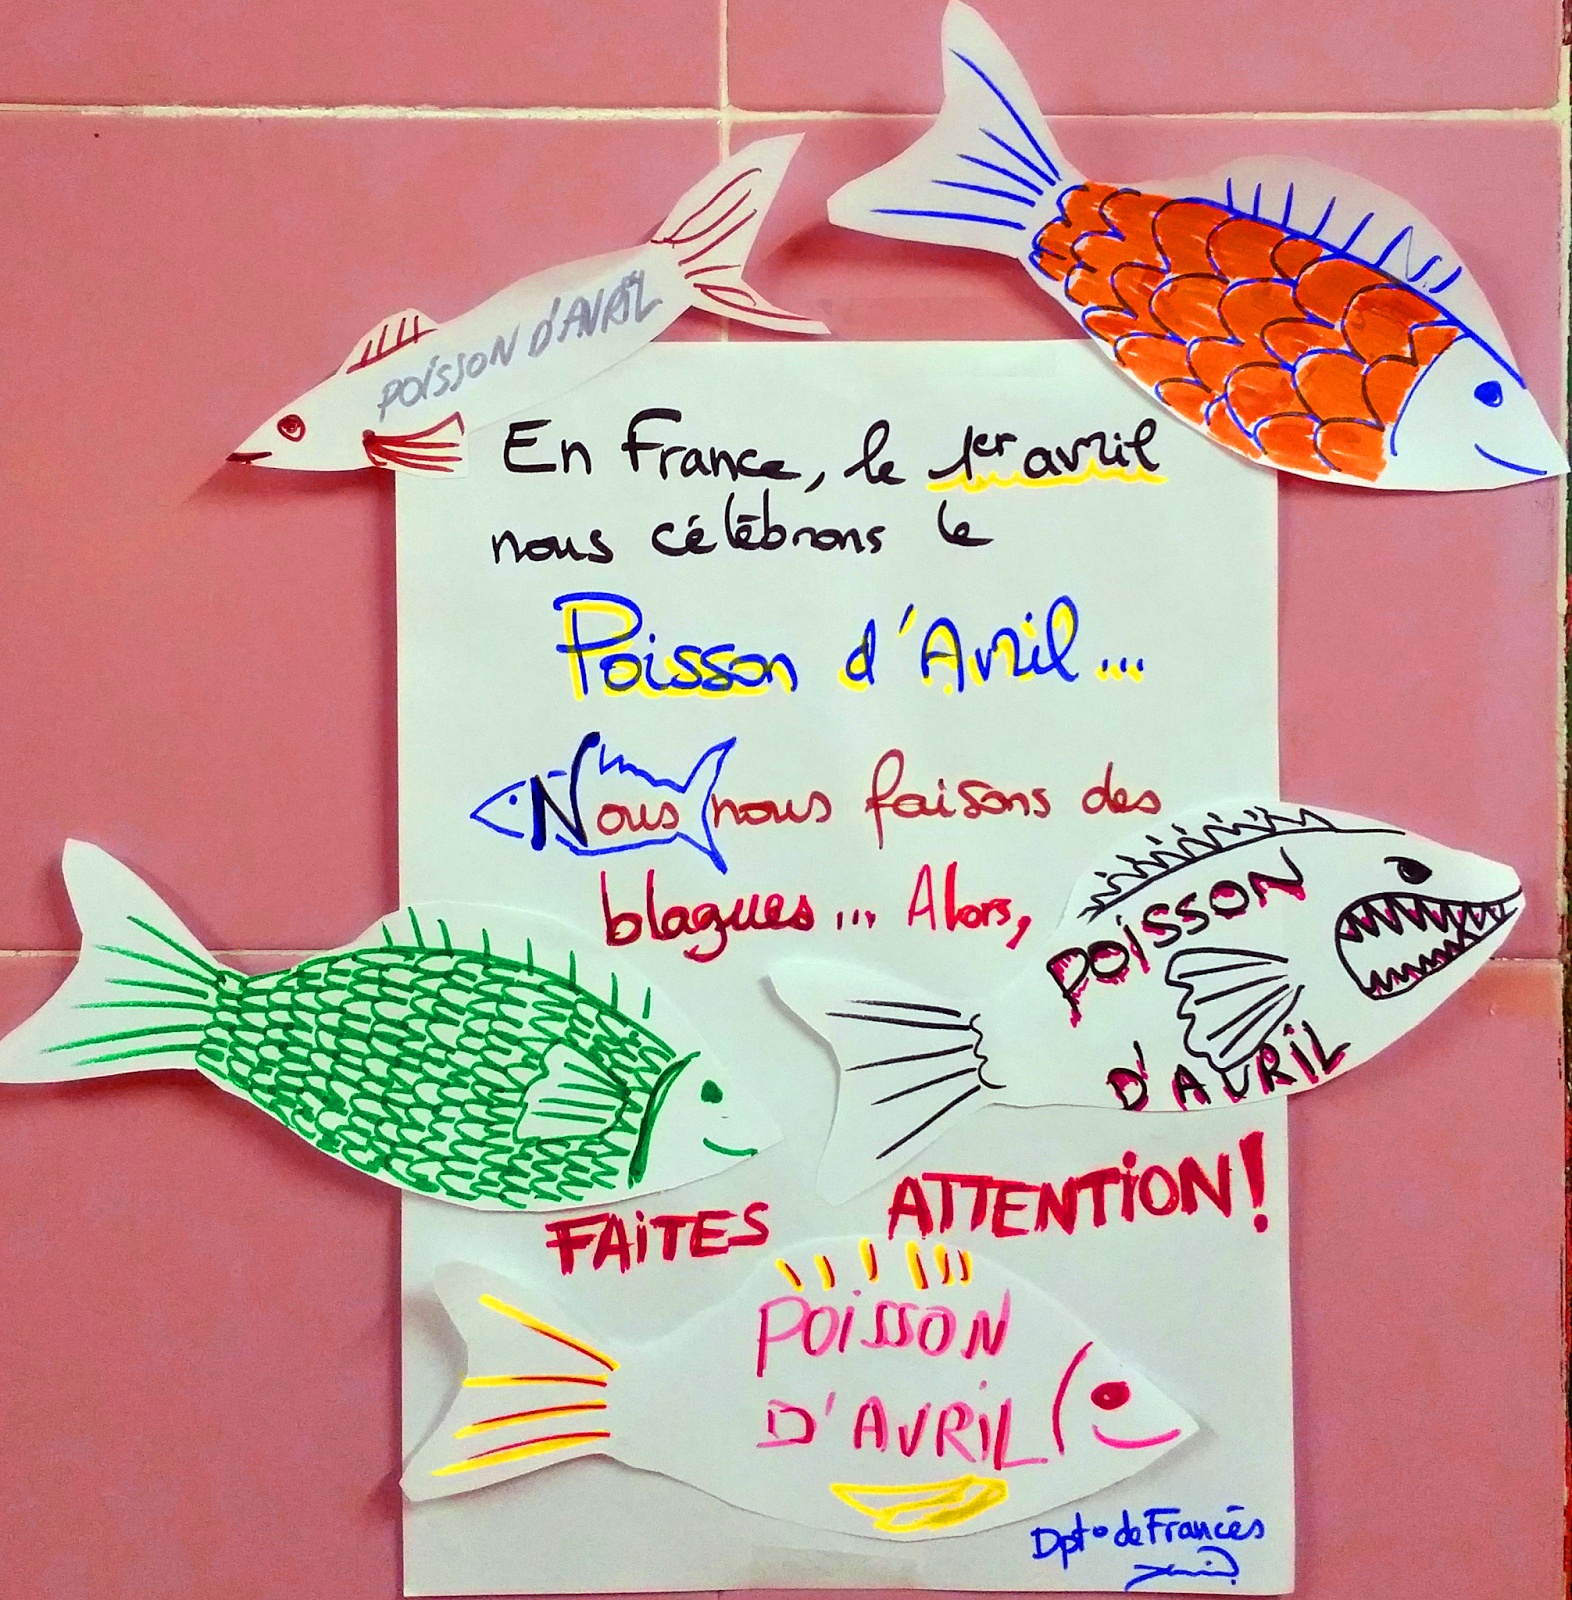 POISSON D'AVRIL
En France, le 1er avril
nous célébrons le
Poisson d'Avril...
Nous nous faisons des
blagues... Alors,
POISSON
D'AVRIL
FAITES ATTENTION!
POISSON
D'AVRIL
Dptº de Francés